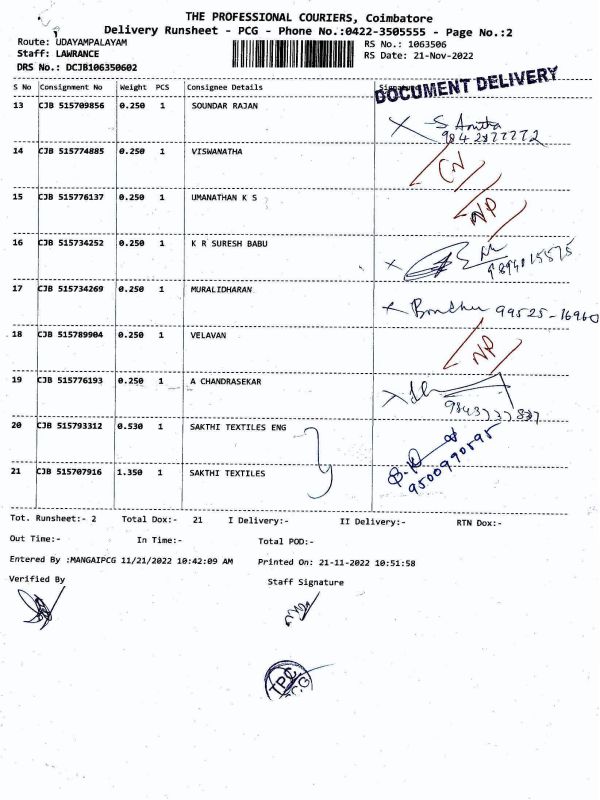 THE PROFESSIONAL COURIERS, Coimbatore
Delivery Runsheet - PCG - Phone No.:0422-3505555 - Page No.:2
Route: UDAYAMPALAYAM RS No.: 1063506
Staff: LAWRANCE RS Date: 21-Nov-2022
DRS No.: DCJB106350602
DOCUMENT DELIVERY
S No Consignment No Weight PCS Consignee Details Signature
13 CJB 515709856 0.250 1 SOUNDAR RAJAN
S Anitha
14 CJB 515774885 0.250 1 VISWANATHA CN
15 CJB 515776137 0.250 1 UMANATHAN K S NP
16 CJB 515734252 0.250 1 K R SURESH BABU
9894015575
17 CJB 515734269 0.250 1 MURALIDHARAN
99525-16960
18 CJB 515789904 0.250 1 VELAVAN NP
19 CJB 515776193 0.250 1 A CHANDRASEKAR
20 CJB 515793312 0.530 1 SAKTHI TEXTILES ENG
9500990595
21 CJB 515707916 1.350 1 SAKTHI TEXTILES
Tot. Runsheet:- 2 Total Dox:- 21 I Delivery:- II Delivery:- RTN Dox:-
Out Time:- In Time:- Total POD:-
Entered By :MANGAIPCG 11/21/2022 10:42:09 AM Printed On: 21-11-2022 10:51:58
Verified By Staff Signature
TPC